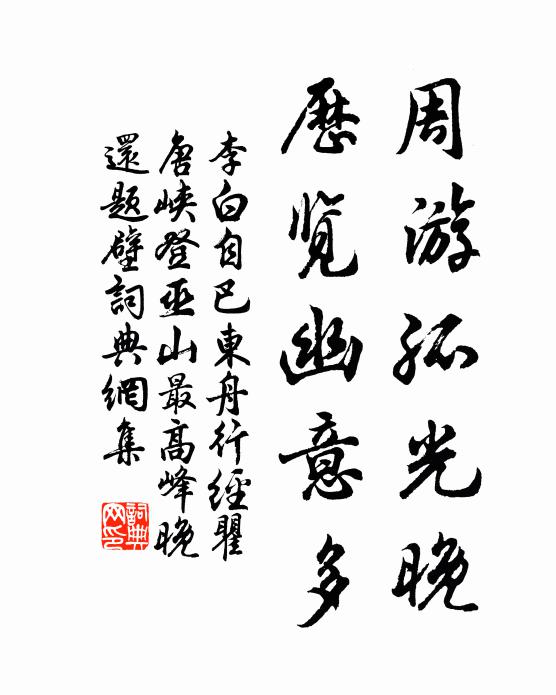 周游孤光晚
历览幽意多
李白自巴東舟行經瞿
唐峡登巫山最高峰晚
還题壁詞典網集
詞典网印